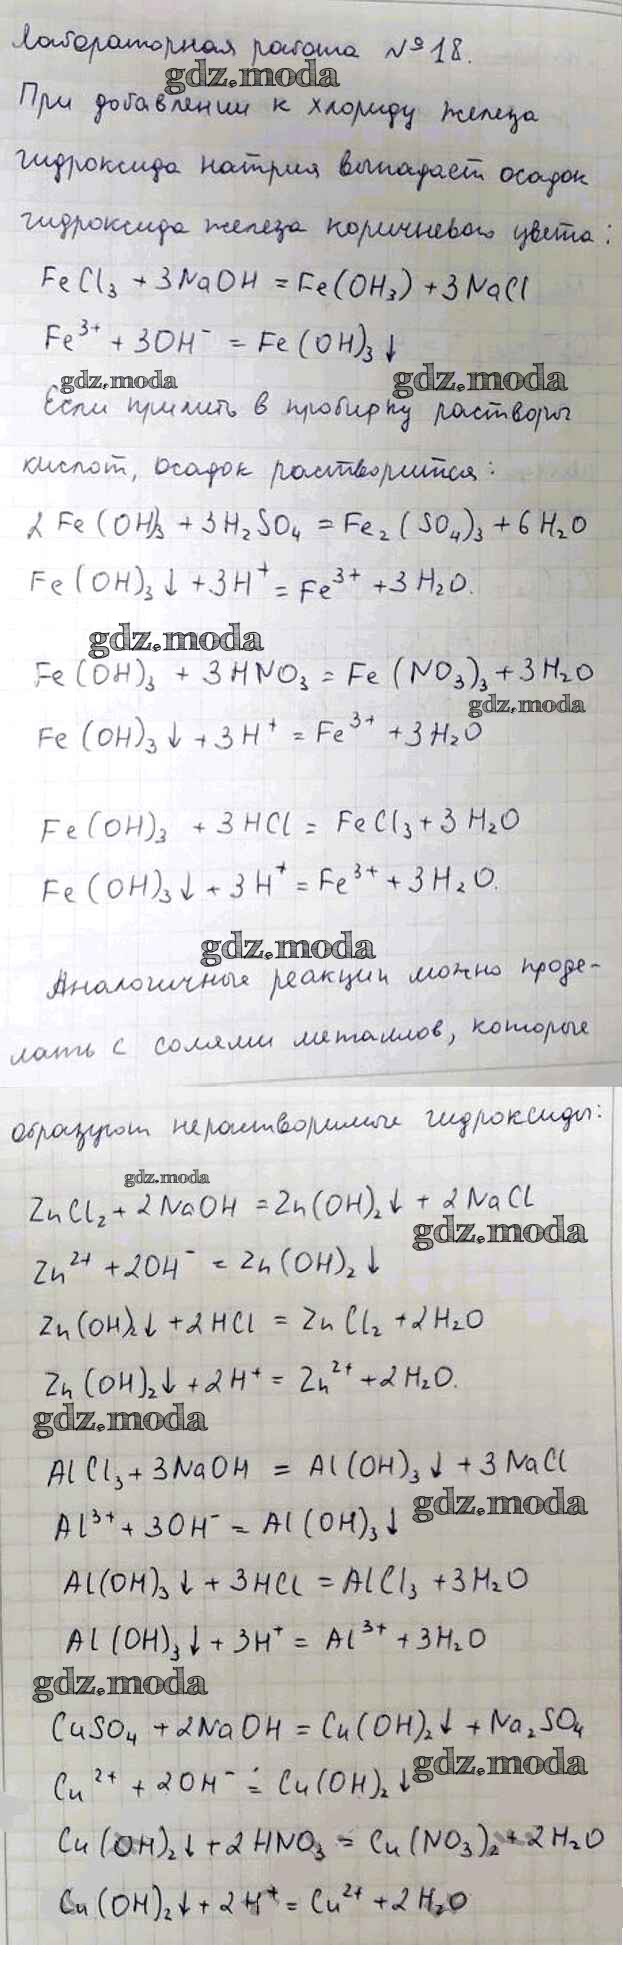 Лабораторная работа №18.
gdz.moda
При добавлении к хлориду железа
гидроксида натрия выпадает осадок
гидроксида железа коричневого цвета:
FeCl₃ + 3NaOH = Fe(OH₃) + 3NaCl
Fe³⁺ + 3OH⁻ = Fe(OH)₃↓
gdz.moda gdz.moda
Если прилить в пробирку растворы
кислот, осадок растворится:
2Fe(OH)₃ + 3H₂SO₄ = Fe₂(SO₄)₃ + 6H₂O
Fe(OH)₃↓ + 3H⁺ = Fe³⁺ + 3H₂O.
gdz.moda
Fe(OH)₃ + 3HNO₃ = Fe(NO₃)₃ + 3H₂O
gdz.moda
Fe(OH)₃↓ + 3H⁺ = Fe³⁺ + 3H₂O
Fe(OH)₃ + 3HCl = FeCl₃ + 3H₂O
Fe(OH)₃↓ + 3H⁺ = Fe³⁺ + 3H₂O.
gdz.moda
Аналогичные реакции можно проде-
лать с солями металлов, которые
образуют нерастворимые гидроксиды:
gdz.moda
ZnCl₂ + 2NaOH = Zn(OH)₂↓ + 2NaCl
gdz.moda
Zn²⁺ + 2OH⁻ = Zn(OH)₂↓
Zn(OH)₂↓ + 2HCl = ZnCl₂ + 2H₂O
Zn(OH)₂↓ + 2H⁺ = Zn²⁺ + 2H₂O.
gdz.moda
AlCl₃ + 3NaOH = Al(OH)₃↓ + 3NaCl
gdz.moda
Al³⁺ + 3OH⁻ = Al(OH)₃↓
Al(OH)₃↓ + 3HCl = AlCl₃ + 3H₂O
Al(OH)₃↓ + 3H⁺ = Al³⁺ + 3H₂O
gdz.moda
CuSO₄ + 2NaOH = Cu(OH)₂↓ + Na₂SO₄
gdz.moda
Cu²⁺ + 2OH⁻ = Cu(OH)₂↓
Cu(OH)₂↓ + 2HNO₃ = Cu(NO₃)₂ + 2H₂O
Cu(OH)₂↓ + 2H⁺ = Cu²⁺ + 2H₂O